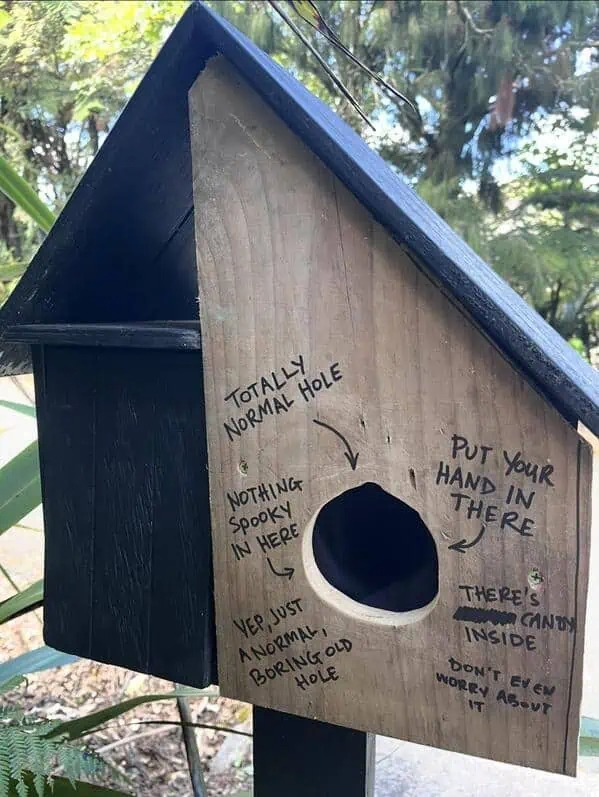 TOTALLY
NORMAL HOLE
PUT YOUR
HAND IN
THERE
NOTHING
SPOOKY
IN HERE
THERE'S
CANDY
INSIDE
YEP, JUST
A NORMAL,
BORING OLD
HOLE
DON'T EVEN
WORRY ABOUT
IT